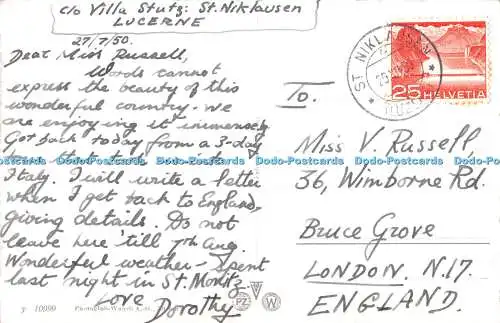 c/o Villa Stutz: St. Niklausen
LUCERNE
27/7/50.
Dear Miss Russell,
Words cannot
express the beauty of this
wonderful country. We
are enjoying it immensely.
Got back today from a 3-day
Italy. I will write a letter
when I get back to England,
giving details. Do not
leave here 'till 7th Aug.
Wonderful weather - Spent
last night in St. Moritz
Love
Dorothy
To.
Miss V. Russell,
36, Wimborne Rd.
Bruce Grove
LONDON. N.17.
ENGLAND.
ST NIKLAUSEN
25 HELVETIA
Dodo-Postcards Dodo-Postcards Dodo-Postcards Dodo-Postcards Dodo-Postcards
10099
PZ
W